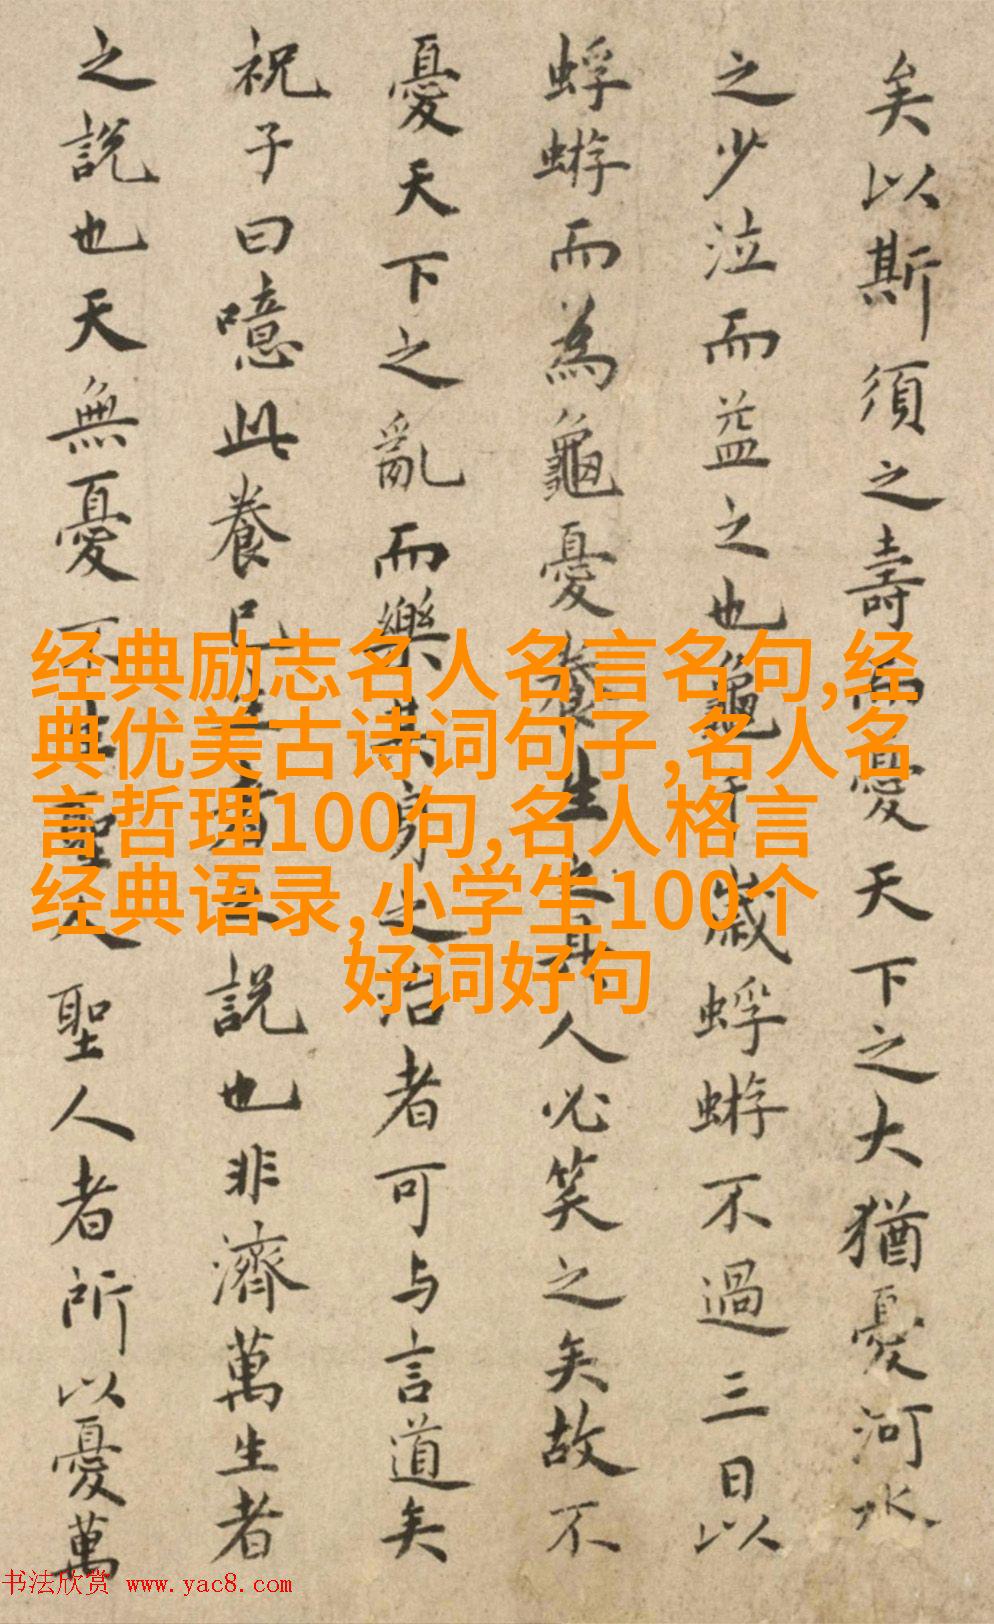 矣以斯須之壽而憂天下之大猶憂河水
之少泣而益之也龜千歲蜉蝣不過三日以
蜉蝣而為龜憂養生之具人必笑之矣故不
憂天下之亂而樂其身之治者可与言道矣
祝子曰噫此養己生者之說也非濟萬生者
之說也天無憂不憂聖人聖人者所以憂萬
经典励志名人名言名句,经
典优美古诗词句子,名人名
言哲理100句,名人格言
经典语录,小学生100个
好词好句
书法欣赏 www.yac8.com